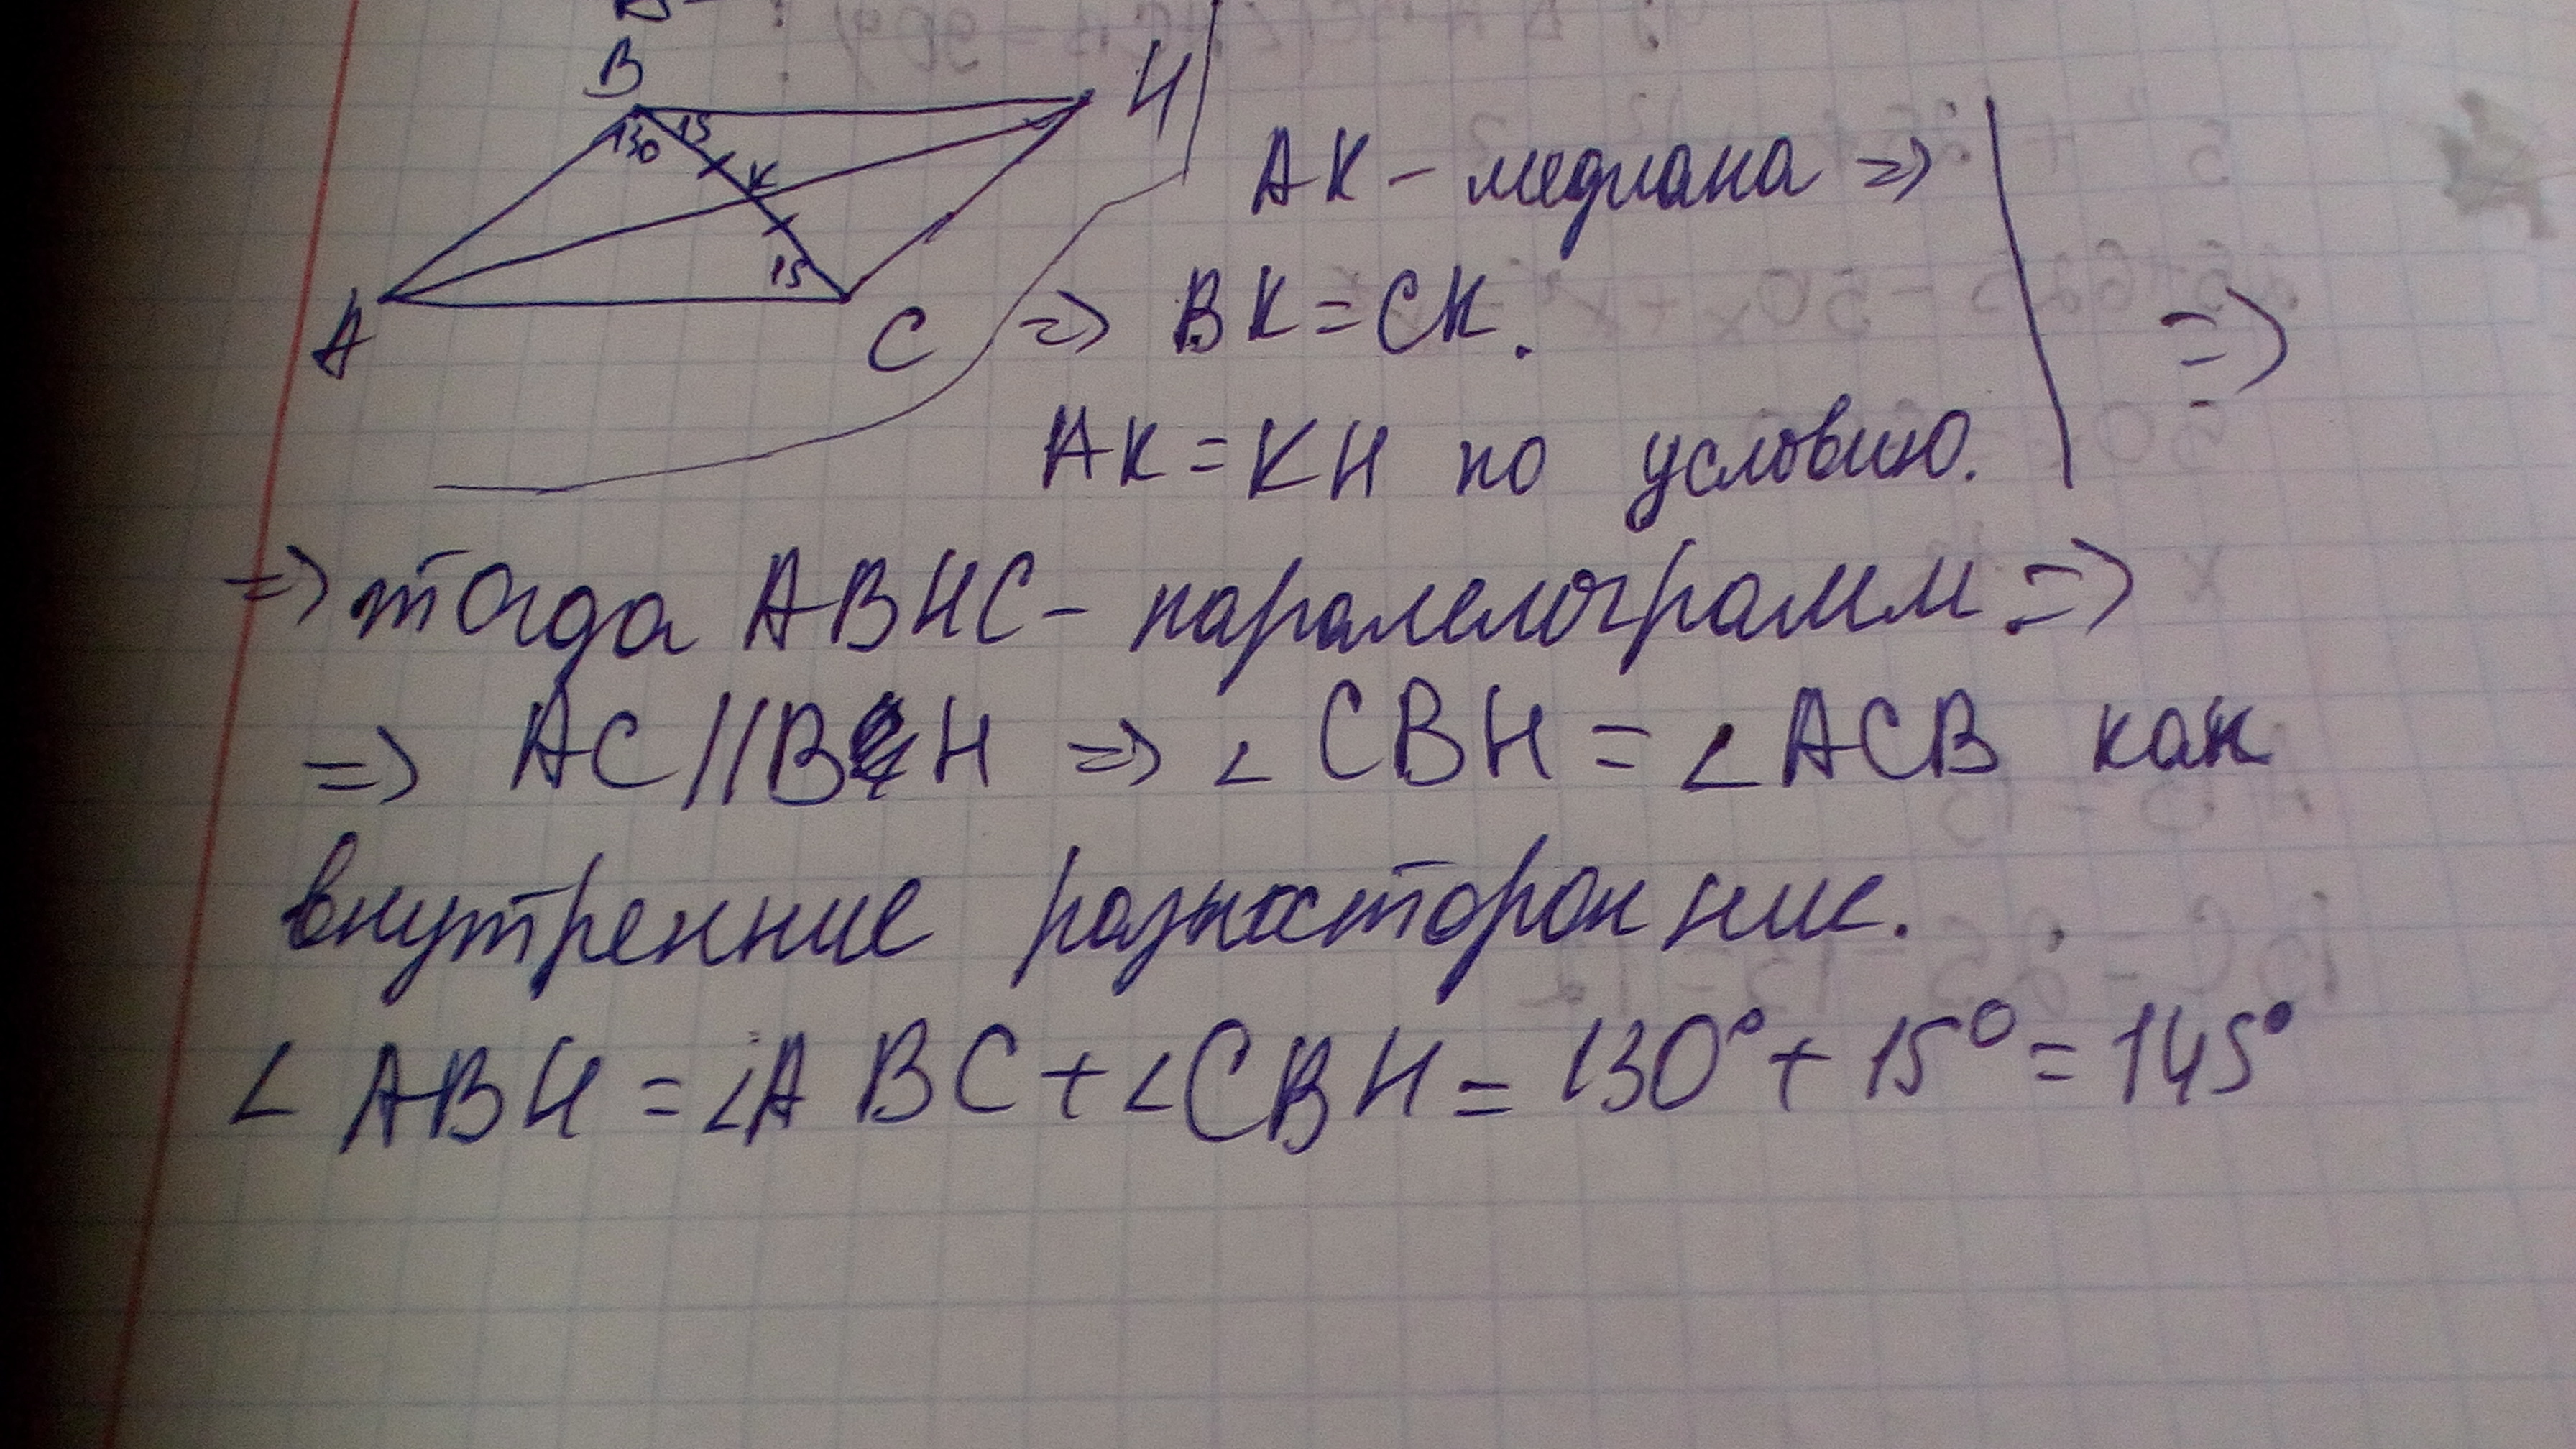 B
H
130
15
K
15
A
C
AK – медиана =>
=> BK = CK.
=>
AK = KH по условию.
=> тогда ABHC – паралелограмм. =>
=> AC // BH => ∠ CBH = ∠ ACB как
внутренние разносторонние.
∠ ABH = ∠A BC + ∠CBH = 130° + 15° = 145°